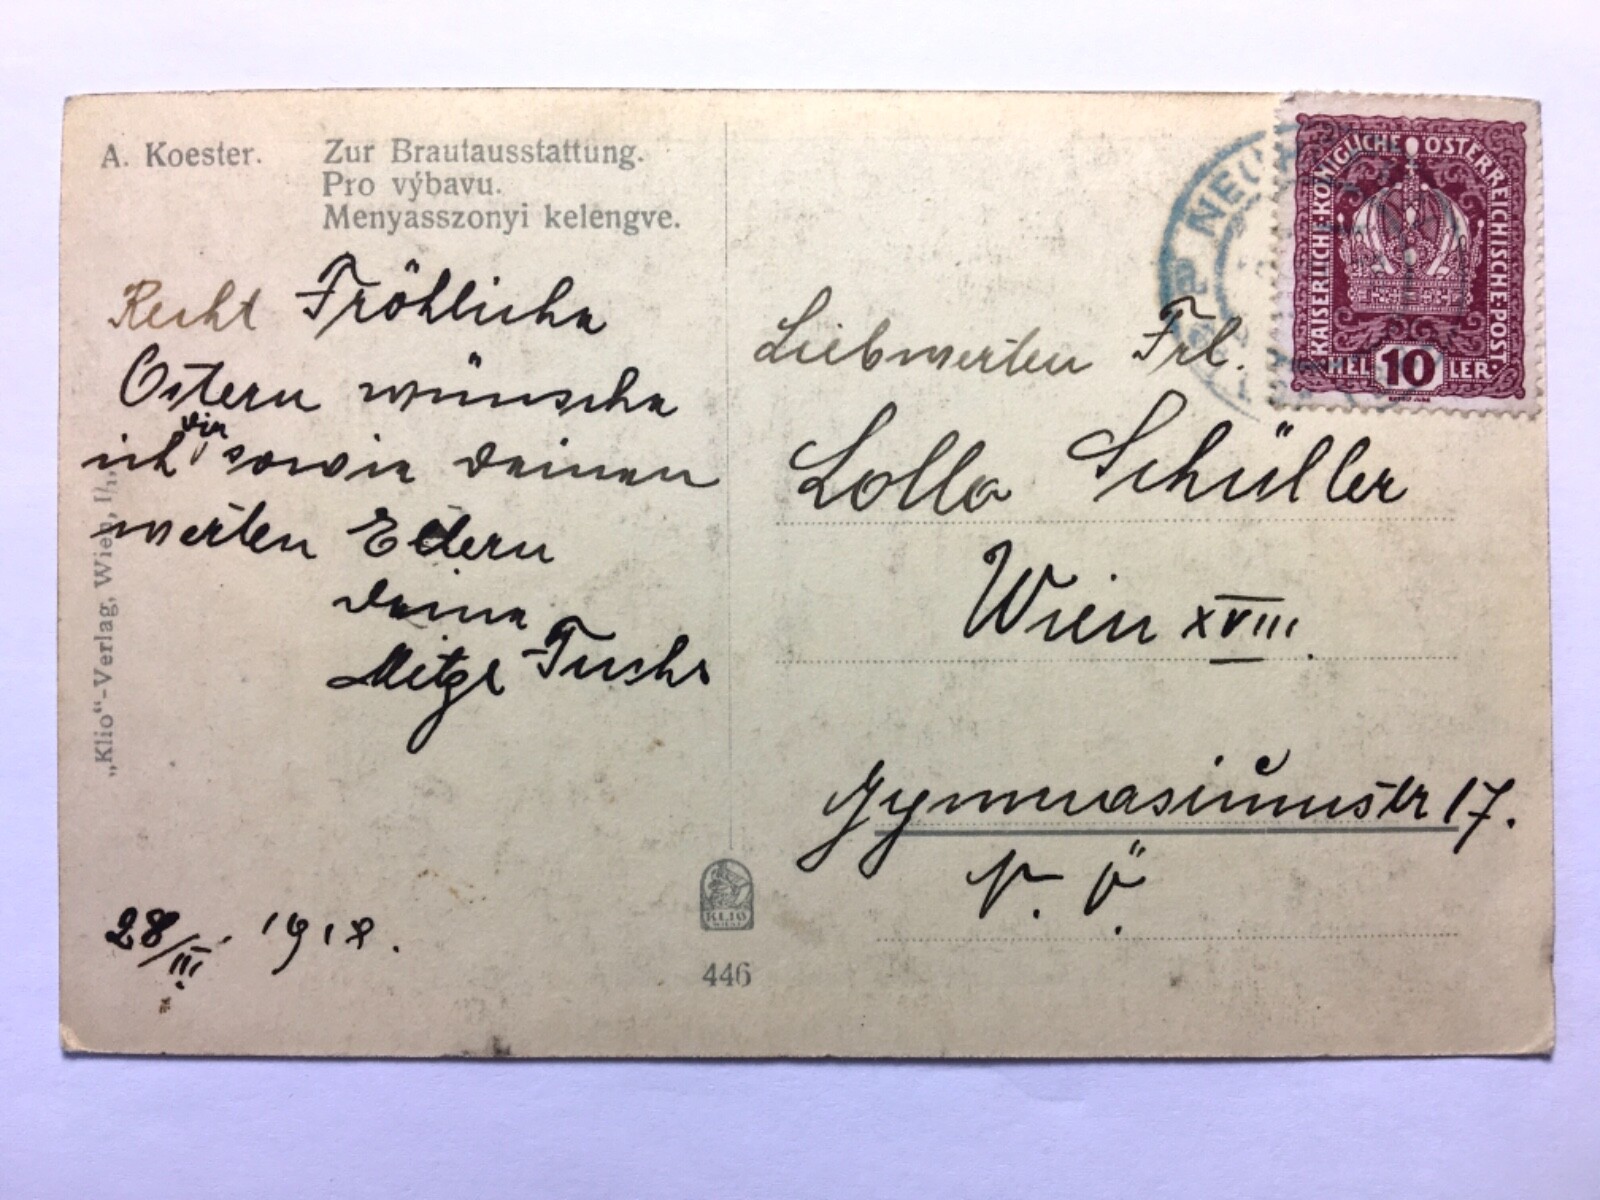 A. Koester.
Zur Brautausstattung.
Pro výbavu.
Menyasszonyi kelengve.
Recht Fröhliche
Ostern wünsche
ich dir sowie deinen
werten Eltern
deine
Mitzi Fuchs
28/III. 1918.
„Klio“-Verlag, Wien, I/
KLIO
WIEN
446
NEU
KAISERLICHE KÖNIGLICHE ÖSTERREICHISCHE POST
HEL 10 LER
Liebwerten Frl.
Lolla Schüller
Wien XVIII.
Gymnasiumstr 17.
N. Ö.